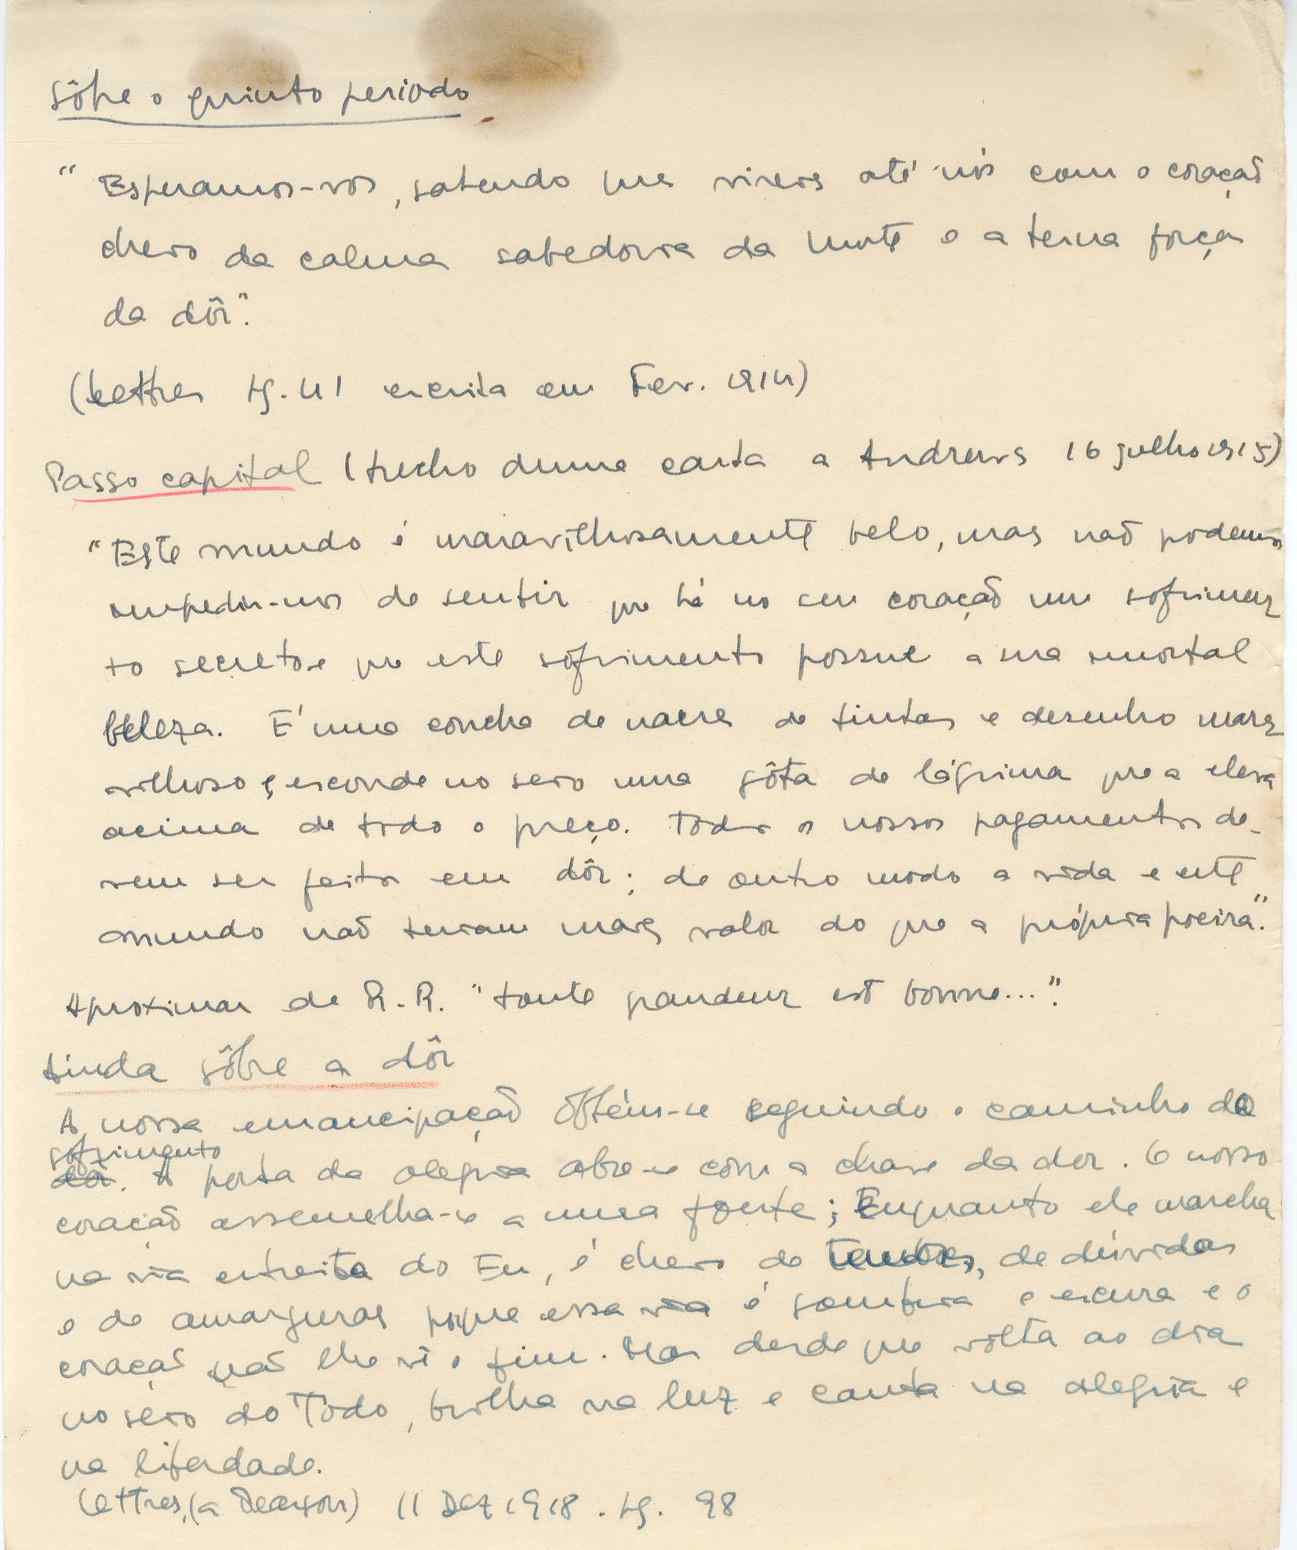 Sôbre o quinto periodo
"Esperamos-vos, sabendo que vireis até nós com o coração
cheio da calma sabedoria da morte e a terna força
da dôr".
(Lettres pg. 41 escrita em Fev. 1914)
Passo capital (trecho duma carta a Andrews 16 julho 1915)
"Este mundo é maravilhosamente belo, mas não podemos
impedir-nos de sentir que há no seu coração um sofrimen
to secreto e que este sofrimento possue a sua imortal
beleza. É uma concha de nacre de tintas e desenho mara
vilhoso e, esconde no seio uma gôta de lágrima que a eleva
acima de todo o preço. Todos os nossos pagamentos de-
vem ser feitos em dôr; de outro modo a vida e este
mundo não teriam mais valor do que a própria poeira".
Aproximar de R.R. "toute grandeur est bonne...".
Ainda sôbre a dôr
A nossa emancipação obtém-se seguindo o caminho do
sofrimento
dôr. A porta da alegria abre-se com a chave da dor. O nosso
coração assemelha-se a uma fonte; Enquanto ele marcha
na via estreita do Eu, é cheio de de dúvidas
e de amarguras porque essa via é sombria e escura e o
coração não lhe vê o fim. Mas desde que volta ao dia
no seio do Todo, brilha na luz e canta na alegria e
na liberdade.
Lettres, (a Pearson) 11 Dez 1918. pg. 98